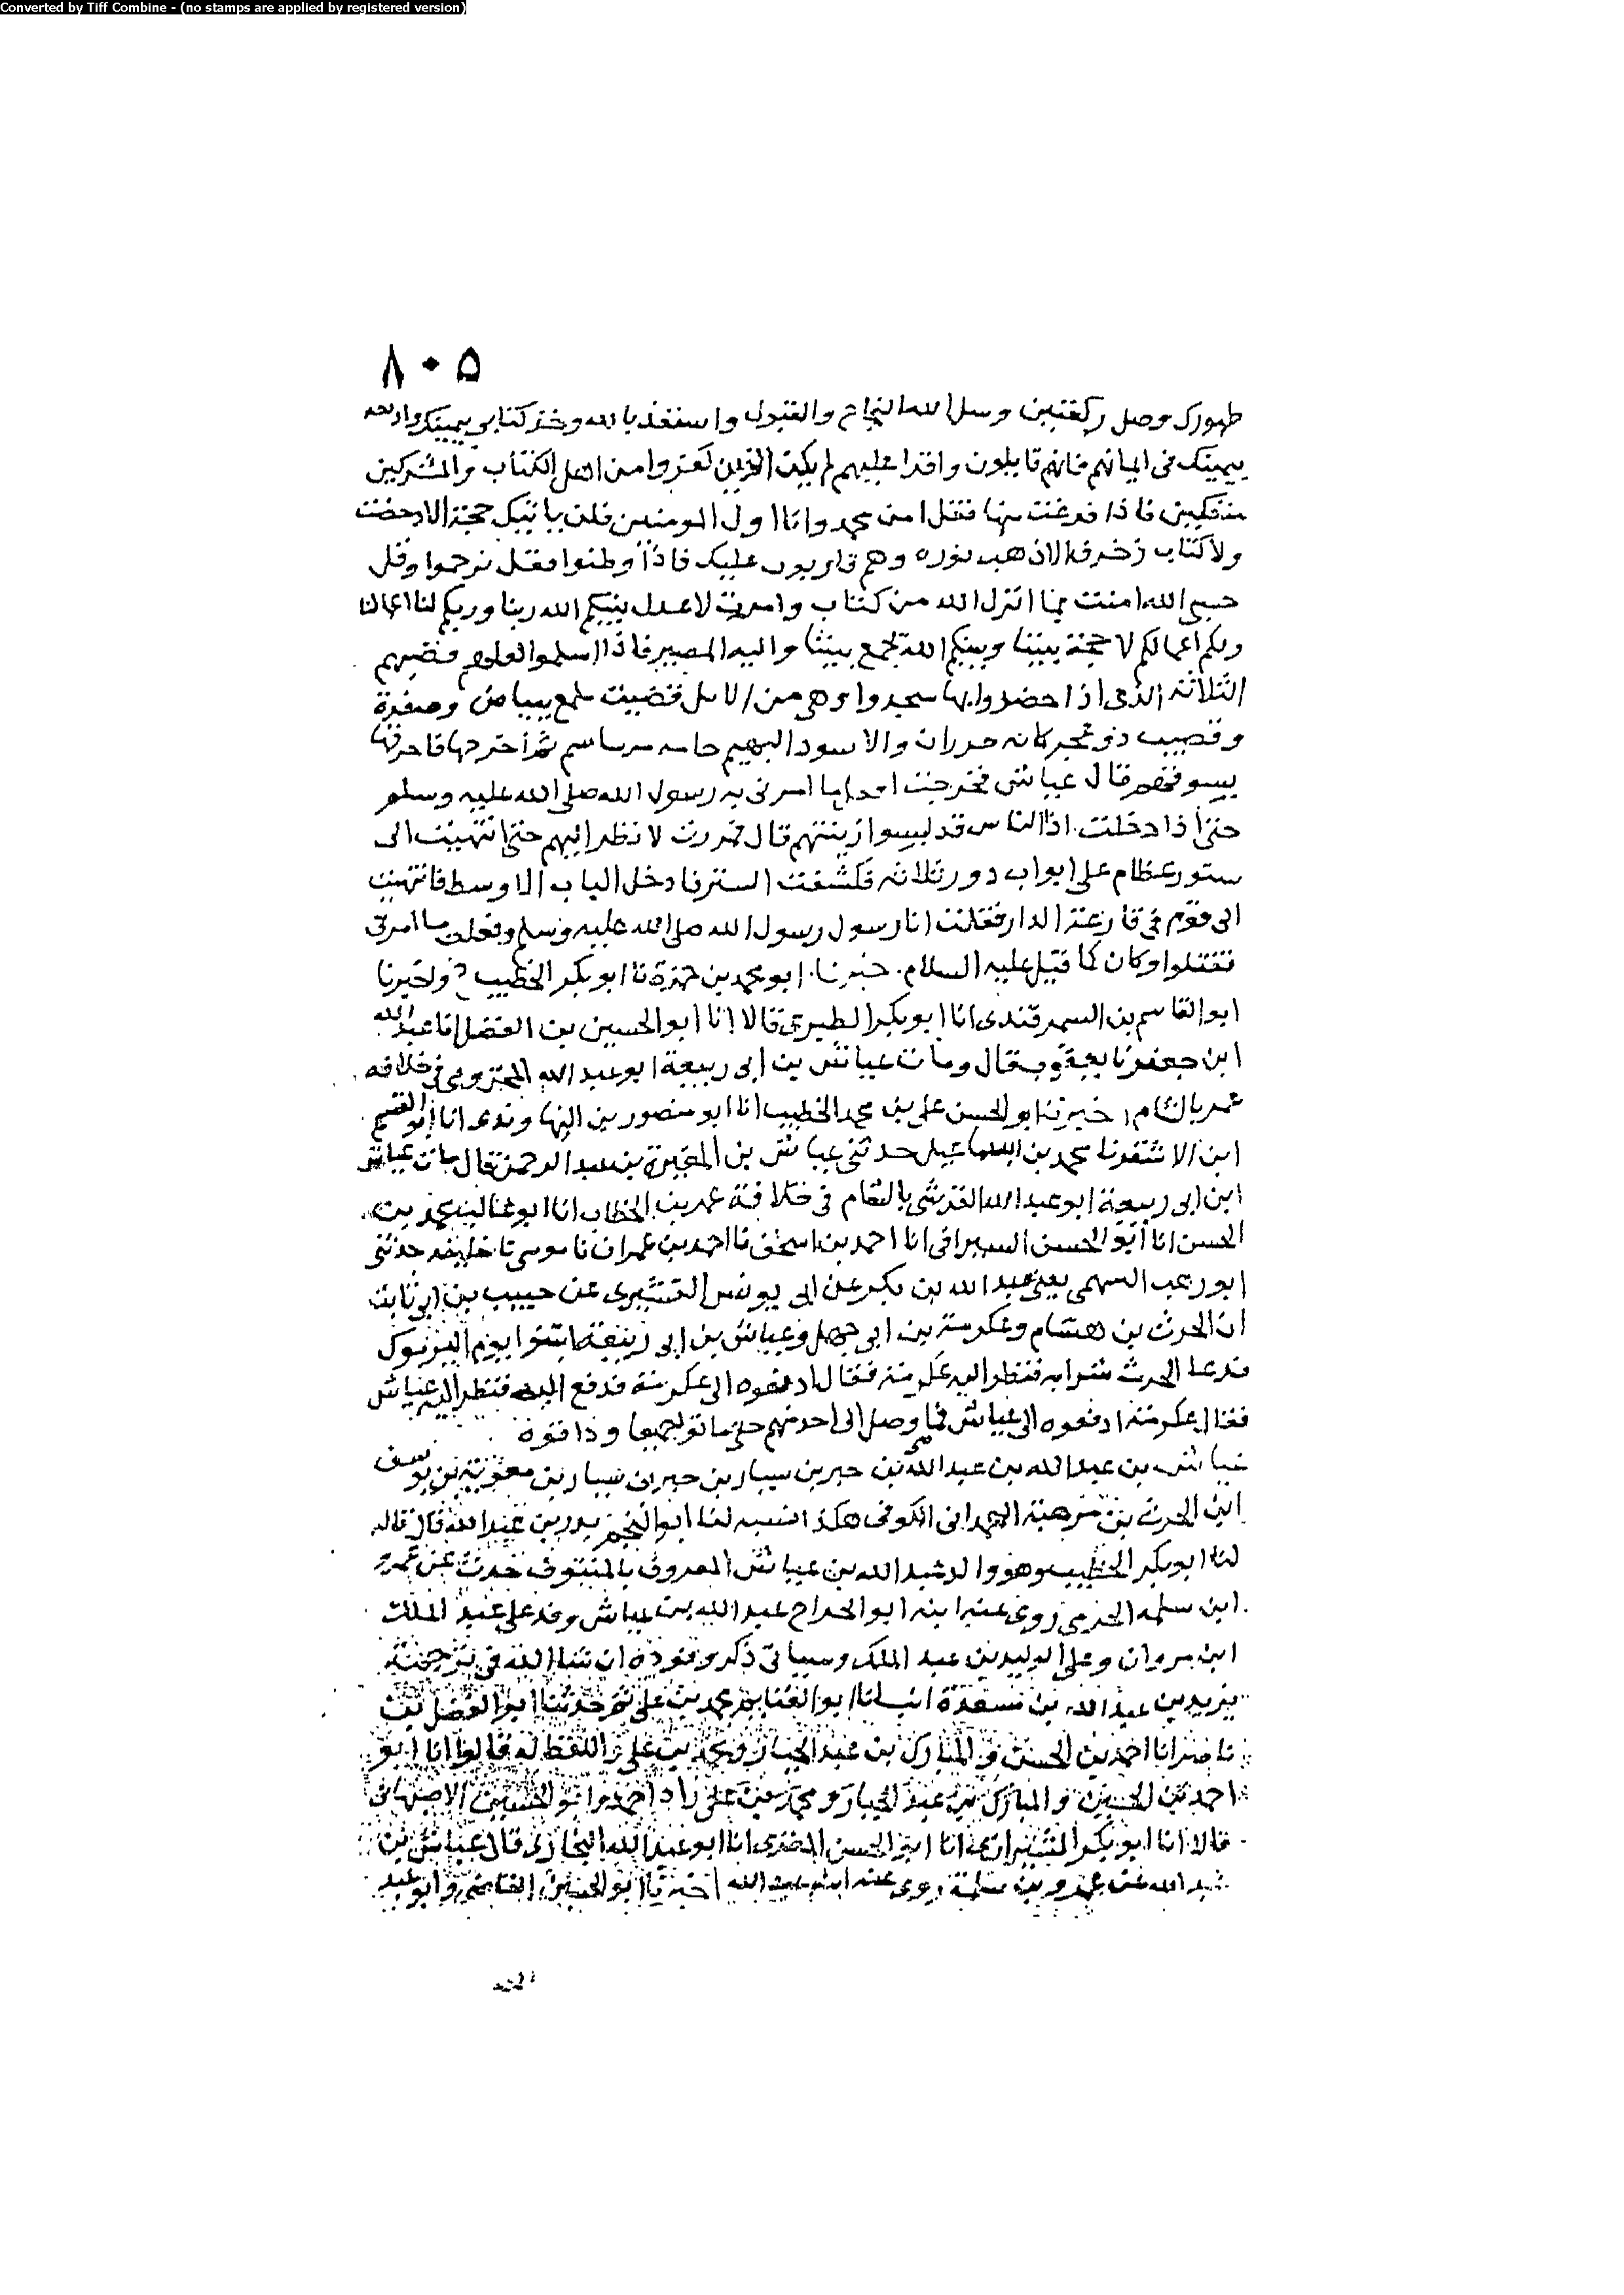 Converted by Tiff Combine - (no stamps are applied by registered version)
٨٠٥
طهورك وصل ركعتين وسل الله النجاح والقبول واستعذ بالله وخذ كتابى بيمينك وادفعه
بيمينك فى ايمانهم فانهم قابلون واقرا عليهم لم يكن الذين كفروا من اهل الكتاب والمشركين
منفكين فاذا فرغت منها فقل امن محمد وانا اول المومنين فلن ياتيك حجة الا دحضت
ولا كتاب زخرف الا ذهب نوره وهم قاريون عليك فاذا رطنوا فقل ترجموا وقل
حسبى الله امنت بما انزل الله من كتاب وامرت لاعدل بينكم الله ربنا وربكم لنا اعمالنا
ولكم اعمالكم لا حجة بيننا وبينكم الله يجمع بيننا واليه المصير فاذا اسلموا فسلهم قضبهم
الثلاثة الذى اذا حضروا بها سجدوا وهى من الاثل قضيب ملمع ببياض وصفرة
وقضيب ذو عجر كانه خيزران والاسود البهيم كانه من ساسم ثم اخرجها فاحرقها
بسوقهم قال عياش فخرجت افعل ما امرنى به رسول الله صلى الله عليه وسلم
حتى اذا دخلت اذا الناس قد لبسوا زينتهم قال فمررت لانظر اليهم حتى انتهيت الى
ستور عظام على ابواب دور ثلاثة فكشفت الستر فادخل الباب الاوسط فانتهيت
الى قوم فى قارعة الدار فقلت انا رسول رسول الله صلى الله عليه وسلم وفعلت ما امرنى
فقبلوا وكان كما قيل عليه السلام. خبرنا ابو محمد بن حمزة نا ابو بكر الخطيب ح واخبرنا
ابو القاسم بن السمرقندى انا ابو بكر الطبرى قالا انا ابو الحسين بن الفضل انا عبد الله
ابن جعفر نا يعقوب قال ومات عياش بن ابى ربيعة ابو عبد الله المخزومى فى خلافه
عمر بالشام اخبرنا ابو الحسن على بن محمد الخطيب انا ابو منصور بن النهاوندى انا ابو القسم
ابن الاشقر نا محمد بن اسماعيل حدثنى عياش بن المغيرة بن عبد الرحمن قال مات عياش
ابن ابى ربيعة ابو عبد الله القرشى بالشام فى خلافة عمر بن الخطاب انا ابو غالب محمد بن
الحسن انا ابو الحسن السيرافى انا احمد بن اسحق نا احمد بن عمران نا موسى نا خليفه حدثنى
ابو وهب السهمى يعنى عبد الله بن بكر عن ابى يونس القشيرى عن حبيب بن ابى ثابت
ان الحرث بن هشام وعكرمة بن ابى جهل وعياش بن ابى ربيعة اثبتوا يوم اليرموك
فدعا الحرث بشراب فنظر اليه عكرمة فقال ادفعوه الى عكرمة فدفع اليه فنظر اليه عياش
فقال عكرمة ادفعوه الى عياش فما وصل الى احد منهم حتى ماتوا جميعا وذاقوه
عياش بن عبد الله بن عبد الله بن جبر بن سيار بن جبر بن سيار بن معوية بن يوسف
ابن الحرث بن مرهبة الهمدانى الكوفى هكذا نسبه لنا ابو النجم بدر بن عبد الله قال قال
لنا ابو بكر الخطيب وهو والد عبد الله بن عياش المعروف بالمنتوف حدث عن عمرو
ابن سلمه الجرمى روى عنه ابنه ابو الجراح عبد الله بن عياش وفد على عبد الملك
ابن مروان وعلى الوليد بن عبد الملك وسياتى ذكر وفوده ان شا الله فى ترجمة
يزيد بن عبد الله بن مسعدة انبانا ابو الغنايم محمد بن على ثم حدثنا ابو الفضل بن
ناصر انا احمد بن الحسن والمبارك بن عبد الجبار ومحمد بن على واللفظ له قالوا انا ابو
احمد بن الحسن والمبارك بن عبد الجبار ومحمد بن على زاد احمد وابو الحسين الاصبهانى
قالا انا ابو بكر الشيرازى انا ابو الحسن المقرى انا ابو عبد الله البخارى قال عياش بن
عبد الله عن عمرو بن سلمة روى عنه ابنه عبد الله اخبرنا ابو الحسين القاضى وابو عبد